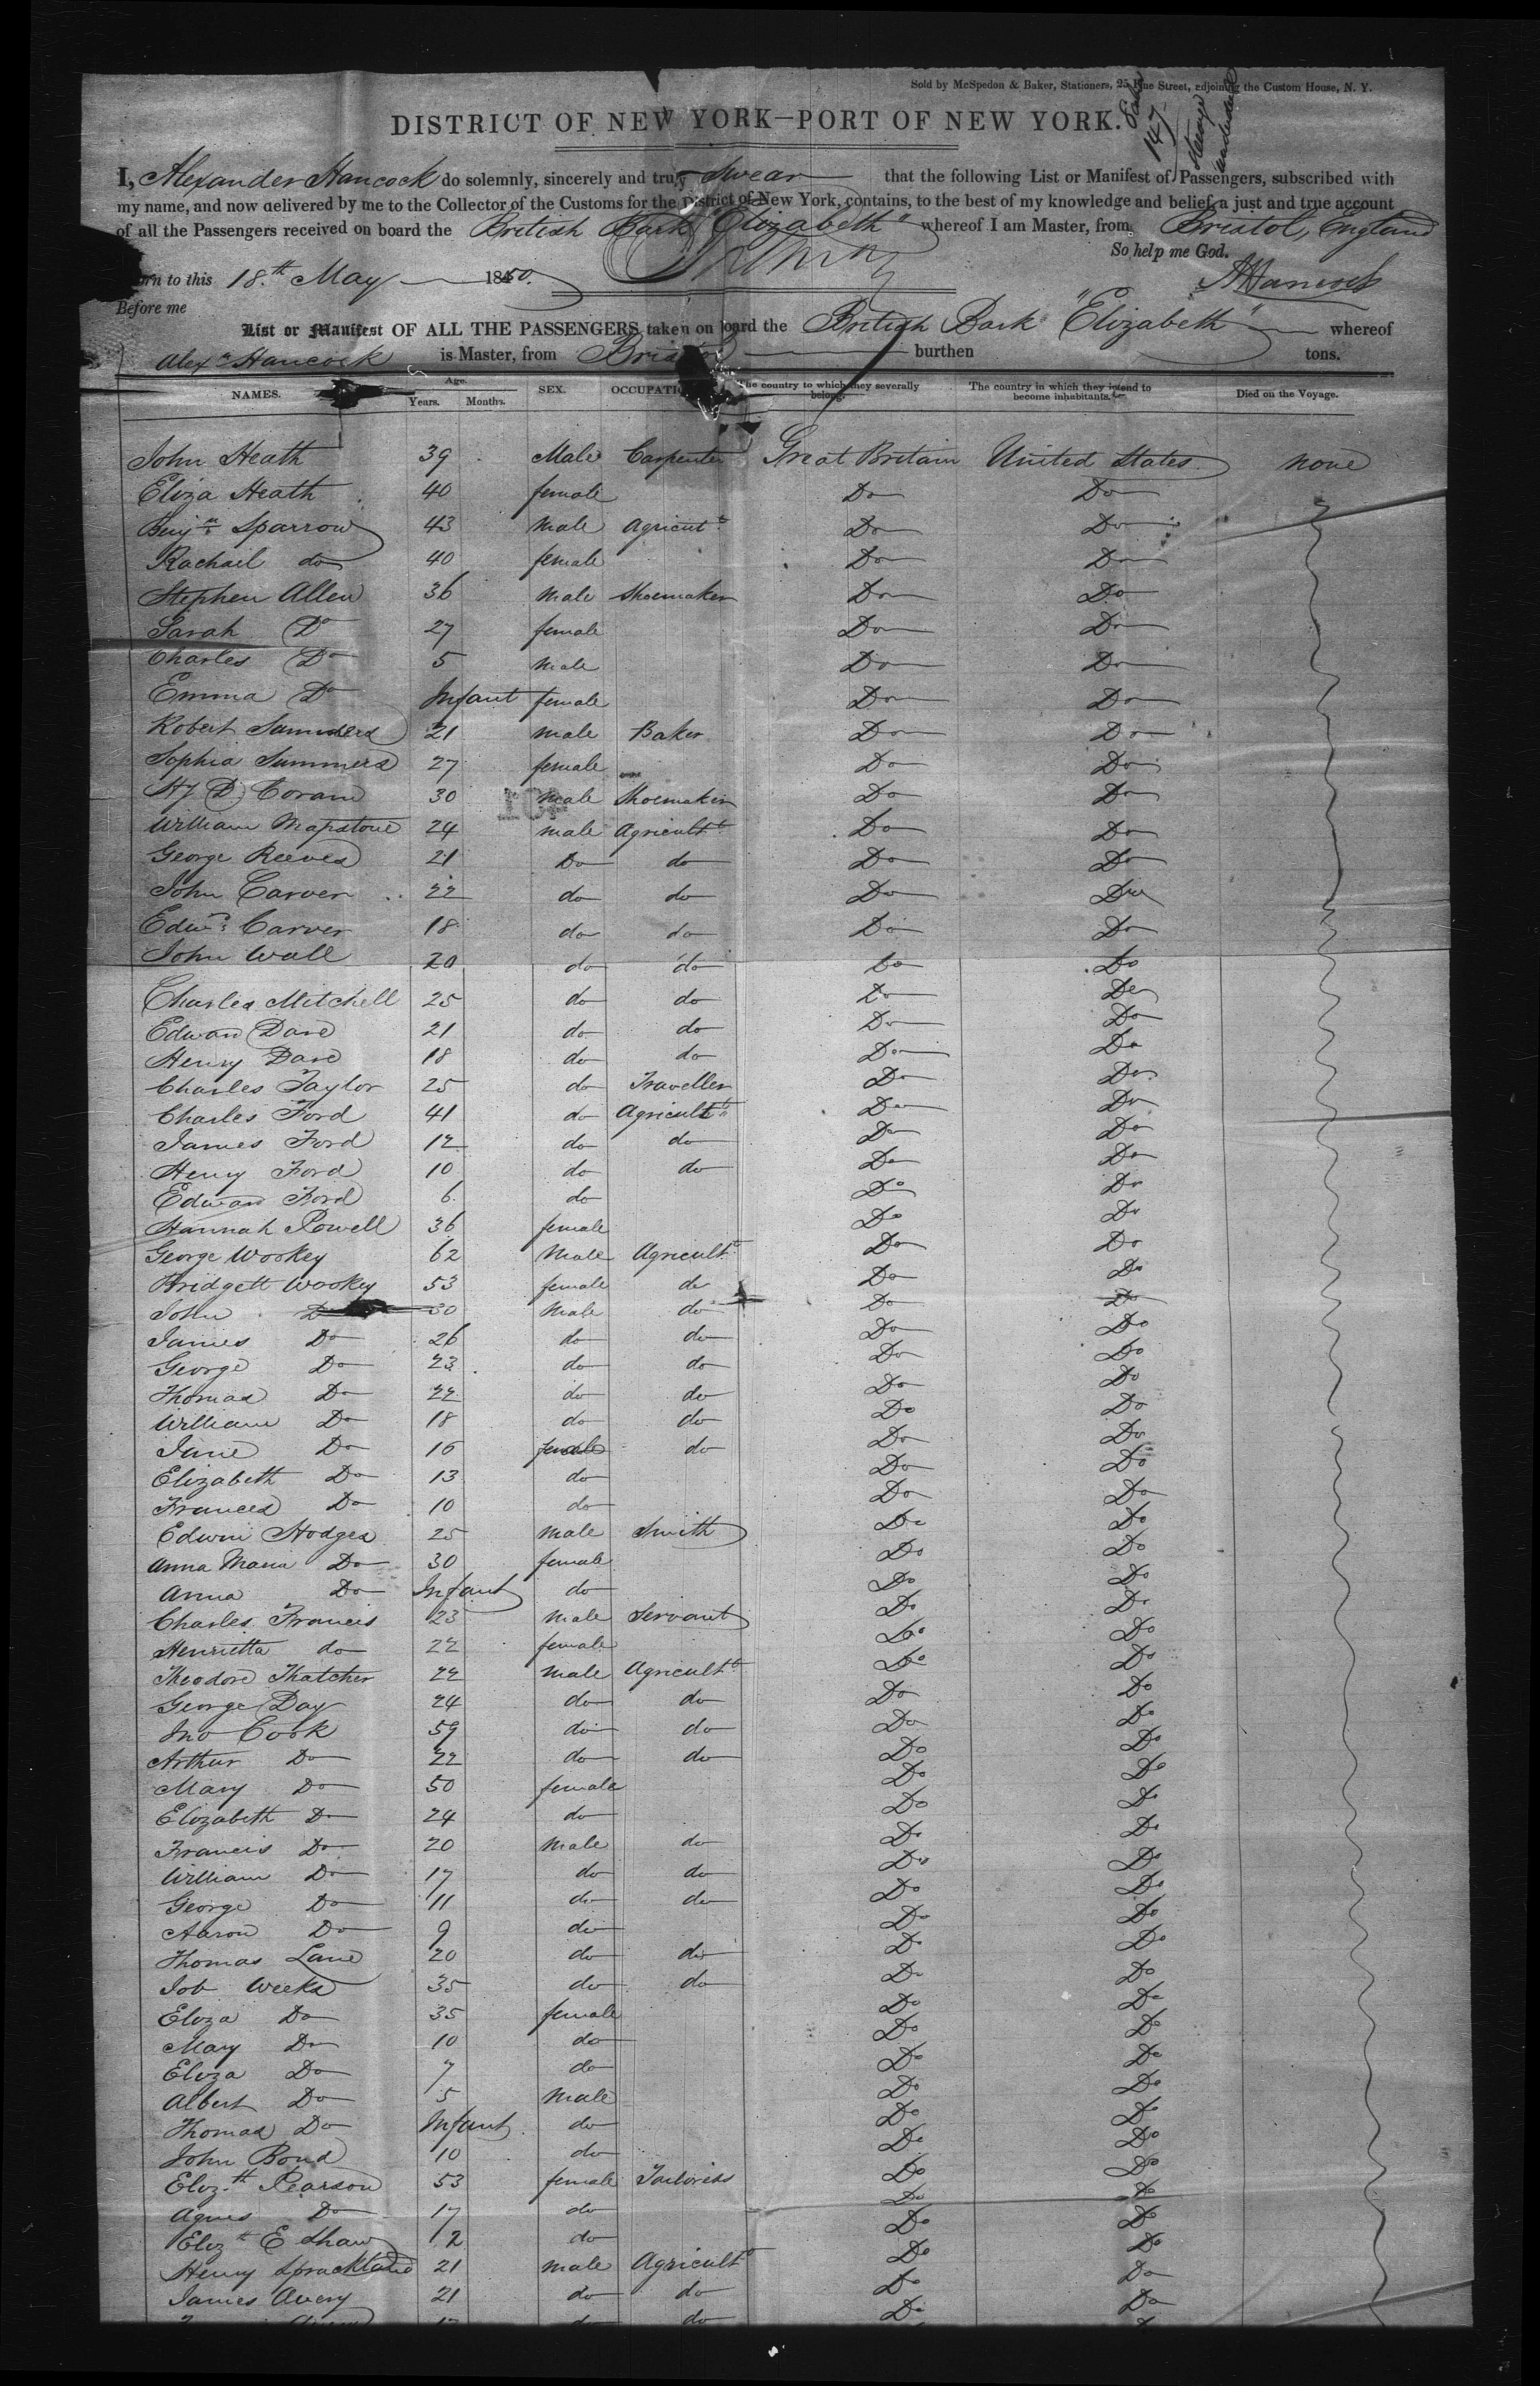 Sold by McSpedon & Baker, Stationers, 25 Pine Street, adjoining the Custom House, N. Y.
DISTRICT OF NEW YORK—PORT OF NEW YORK.
147
Steerage
I, Alexander Hancock do solemnly, sincerely and truly swear that the following List or Manifest of Passengers, subscribed with
my name, and now delivered by me to the Collector of the Customs for the District of New York, contains, to the best of my knowledge and belief, a just and true account
of all the Passengers received on board the British Bark "Elizabeth" whereof I am Master, from Bristol, England
So help me God.
Sworn to this 18.th May 1850. AHancock
Before me
List or Manifest OF ALL THE PASSENGERS taken on board the British Bark "Elizabeth" whereof
Alexr Hancock is Master, from Bristol burthen tons.
NAMES. Age. Years. Months. SEX. OCCUPATION The country to which they severally belong. The country in which they intend to become inhabitants. Died on the Voyage.
John Heath 39 Male Carpenter Great Britain United States none
Eliza Heath 40 female Do Do
Benjn Sparrow 43 Male Agricultr Do Do
Rachail do 40 female Do Do
Stephen Allen 36 Male Shoemaker Do Do
Sarah Do 27 female Do Do
Charles Do 5 Male Do Do
Emma Do Infant female Do Do
Robert Summers 21 male Baker Do Do
Sophia Summers 27 female Do Do
Hy D Coram 30 male Shoemaker Do Do
William Mapstone 24 male Agricultr Do Do
George Reeves 21 Do do Do Do
John Carver 22 do do Do Do
Edwd Carver 18 do do Do Do
John Wall 20 do do Do Do
Charles Mitchell 25 do do Do Do
Edwan Dare 21 do do Do Do
Henry Dare 18 do do Do Do
Charles Taylor 25 do Traveller Do Do
Charles Ford 41 do Agricultr Do Do
James Ford 12 do do Do Do
Henry Ford 10 do do Do Do
Edwan Ford 6 do Do Do
Hannah Powell 36 female Do Do
George Wookey 62 Male Agricultr Do Do
Bridgett Wookey 53 female do Do Do
John Do 30 Male do Do Do
James Do 26 do do Do Do
George Do 23 do do Do Do
Thomas Do 22 do do Do Do
William Do 18 do do Do Do
Jane Do 16 female do Do Do
Elizabeth Do 13 do Do Do
Frances Do 10 do Do Do
Edwin Hodges 25 male Smith Do Do
Anna Maria Do 30 female Do Do
Anna Do Infant do Do Do
Charles Francis 23 male Servant Do Do
Henrietta do 22 female Do Do
Theodore Thatcher 22 male Agricultr Do Do
George Day 24 do do Do Do
Jno Cook 59 do do Do Do
Arthur Do 22 do do Do Do
Mary Do 50 female Do Do
Elizabeth Do 24 do Do Do
Francis Do 20 Male do Do Do
William Do 17 do do Do Do
George Do 11 do do Do Do
Aaron Do 9 do Do Do
Thomas Lane 20 do do Do Do
Job Weeks 35 do do Do Do
Eliza Do 35 female Do Do
Mary Do 10 do Do Do
Eliza Do 7 do Do Do
Albert Do 5 Male Do Do
Thomas Do Infant do Do Do
John Bond 10 do Do Do
Eliz.th Pearson 53 female Tailoress Do Do
Agnes Do 17 do Do Do
Elizth E Shaw 12 do Do Do
Henry Sprackland 21 male Agricultr Do Do
James Avery 21 do do Do Do
do do Do